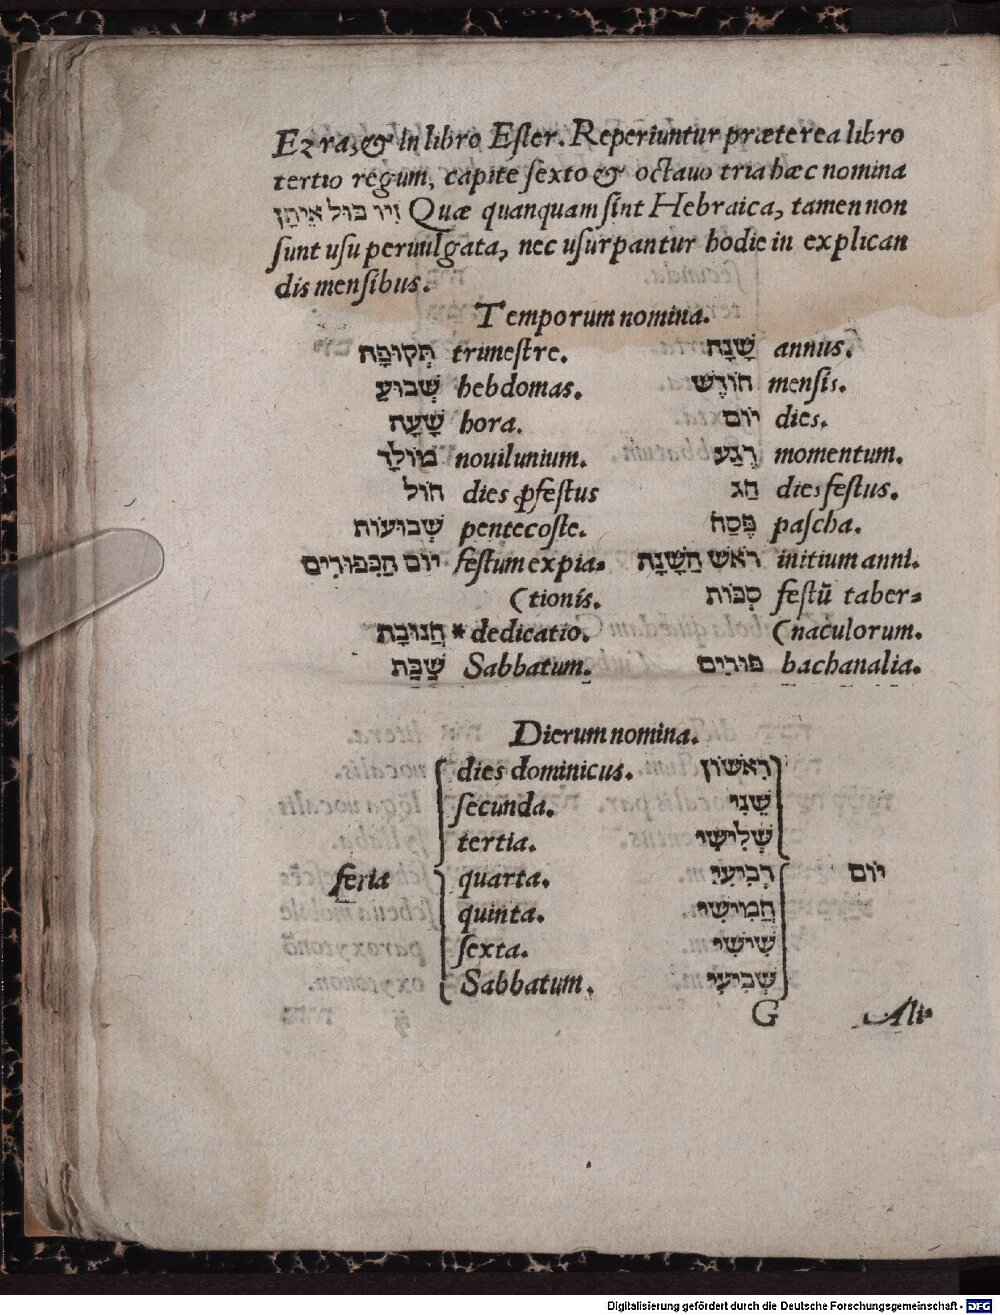 Ezra, & in libro Ester. Reperiuntur præterea libro
tertio regum, capite sexto & octauo tria hæc nomina
זִיו בּוּל אֵיתָן Quæ quanquam sint Hebraica, tamen non
sunt usu peruulgata, nec usurpantur hodie in explican
dis mensibus.
Temporum nomina.
תְּקוּפָה trimestre. שָׁנָה annus.
שְׁבוּעַ hebdomas. חוֹדֶשׁ mensis.
שָׁעָה hora. יוֹם dies.
מוֹלָד nouilunium. רֶגַע momentum.
חוֹל dies ꝓfestus חַג dies festus.
שְׁבוּעוֹת pentecoste. פֶּסַח pascha.
יוֹם הַכִּפּוּרִים festum expia= רֹאשׁ הַשָּׁנָה initium anni.
(tionis. סֻכּוֹת festū taber=
חֲנוּכָּה * dedicatio. (naculorum.
שַׁבָּת Sabbatum. פּוּרִים bachanalia.
Dierum nomina.
dies dominicus. רִאשׁוֹן
secunda. שֵׁנִי
tertia. שְׁלִישִׁי
feria quarta. רְבִיעִי יוֹם
quinta. חֲמִישִׁי
sexta. שִׁישִׁי
Sabbatum. שְׁבִיעִי
G Ali=
Digitalisierung gefördert durch die Deutsche Forschungsgemeinschaft - DFG